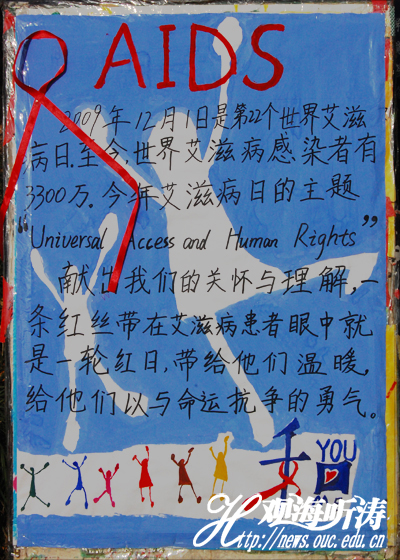 AIDS
2009年12月1日是第22个世界艾滋
病日.至今,世界艾滋病感染者有
3300万.今年艾滋病日的主题
“Universal Access and Human Rights”
献出我们的关怀与理解,一
条红丝带在艾滋病患者眼中就
是一轮红日,带给他们温暖,
给他们以与命运抗争的勇气。
YOU
观海听涛
http://news.ouc.edu.cn